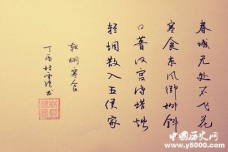 春城无处不飞花
寒食东风御柳斜
日暮汉宫传蜡烛
轻烟散入五侯家
韩翃寒食
中国历史网
www.y5000.com